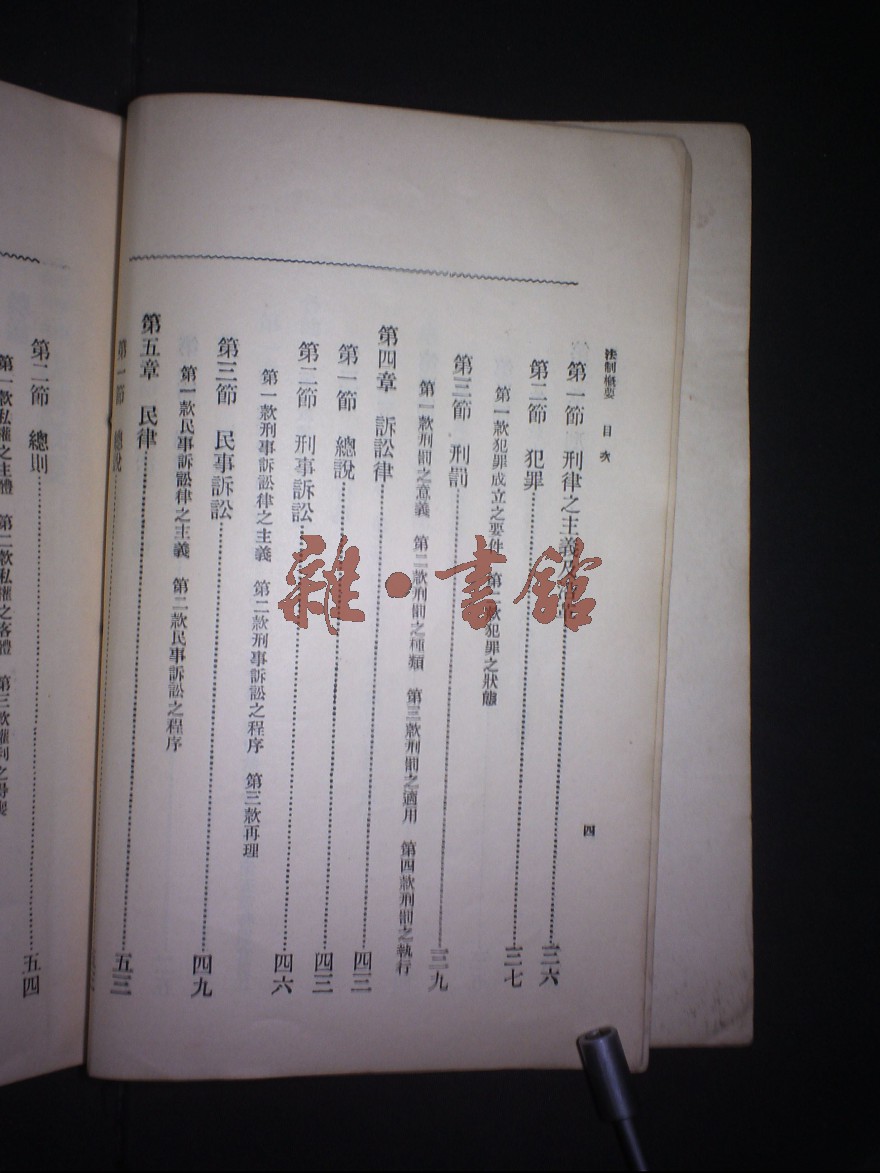 法制概要　目次
四
第一節　刑律之主義及 三六
第二節　犯罪 三七
第一款犯罪成立之要件　第二款犯罪之狀態
第三節　刑罰 三九
第一款刑罰之意義　第二款刑罰之種類　第三款刑罰之適用　第四款刑罰之執行
第四章　訴訟律 四三
第一節　總說 四三
第二節　刑事訴訟 四六
第一款刑事訴訟律之主義　第二款刑事訴訟之程序　第三款再理
第三節　民事訴訟 四九
第一款民事訴訟律之主義　第二款民事訴訟之程序
第五章　民律 五三
第一節　總說
第二節　總則 五四
第一款私權之主體　第二款私權之客體　第三款權利之得喪
雜·書館